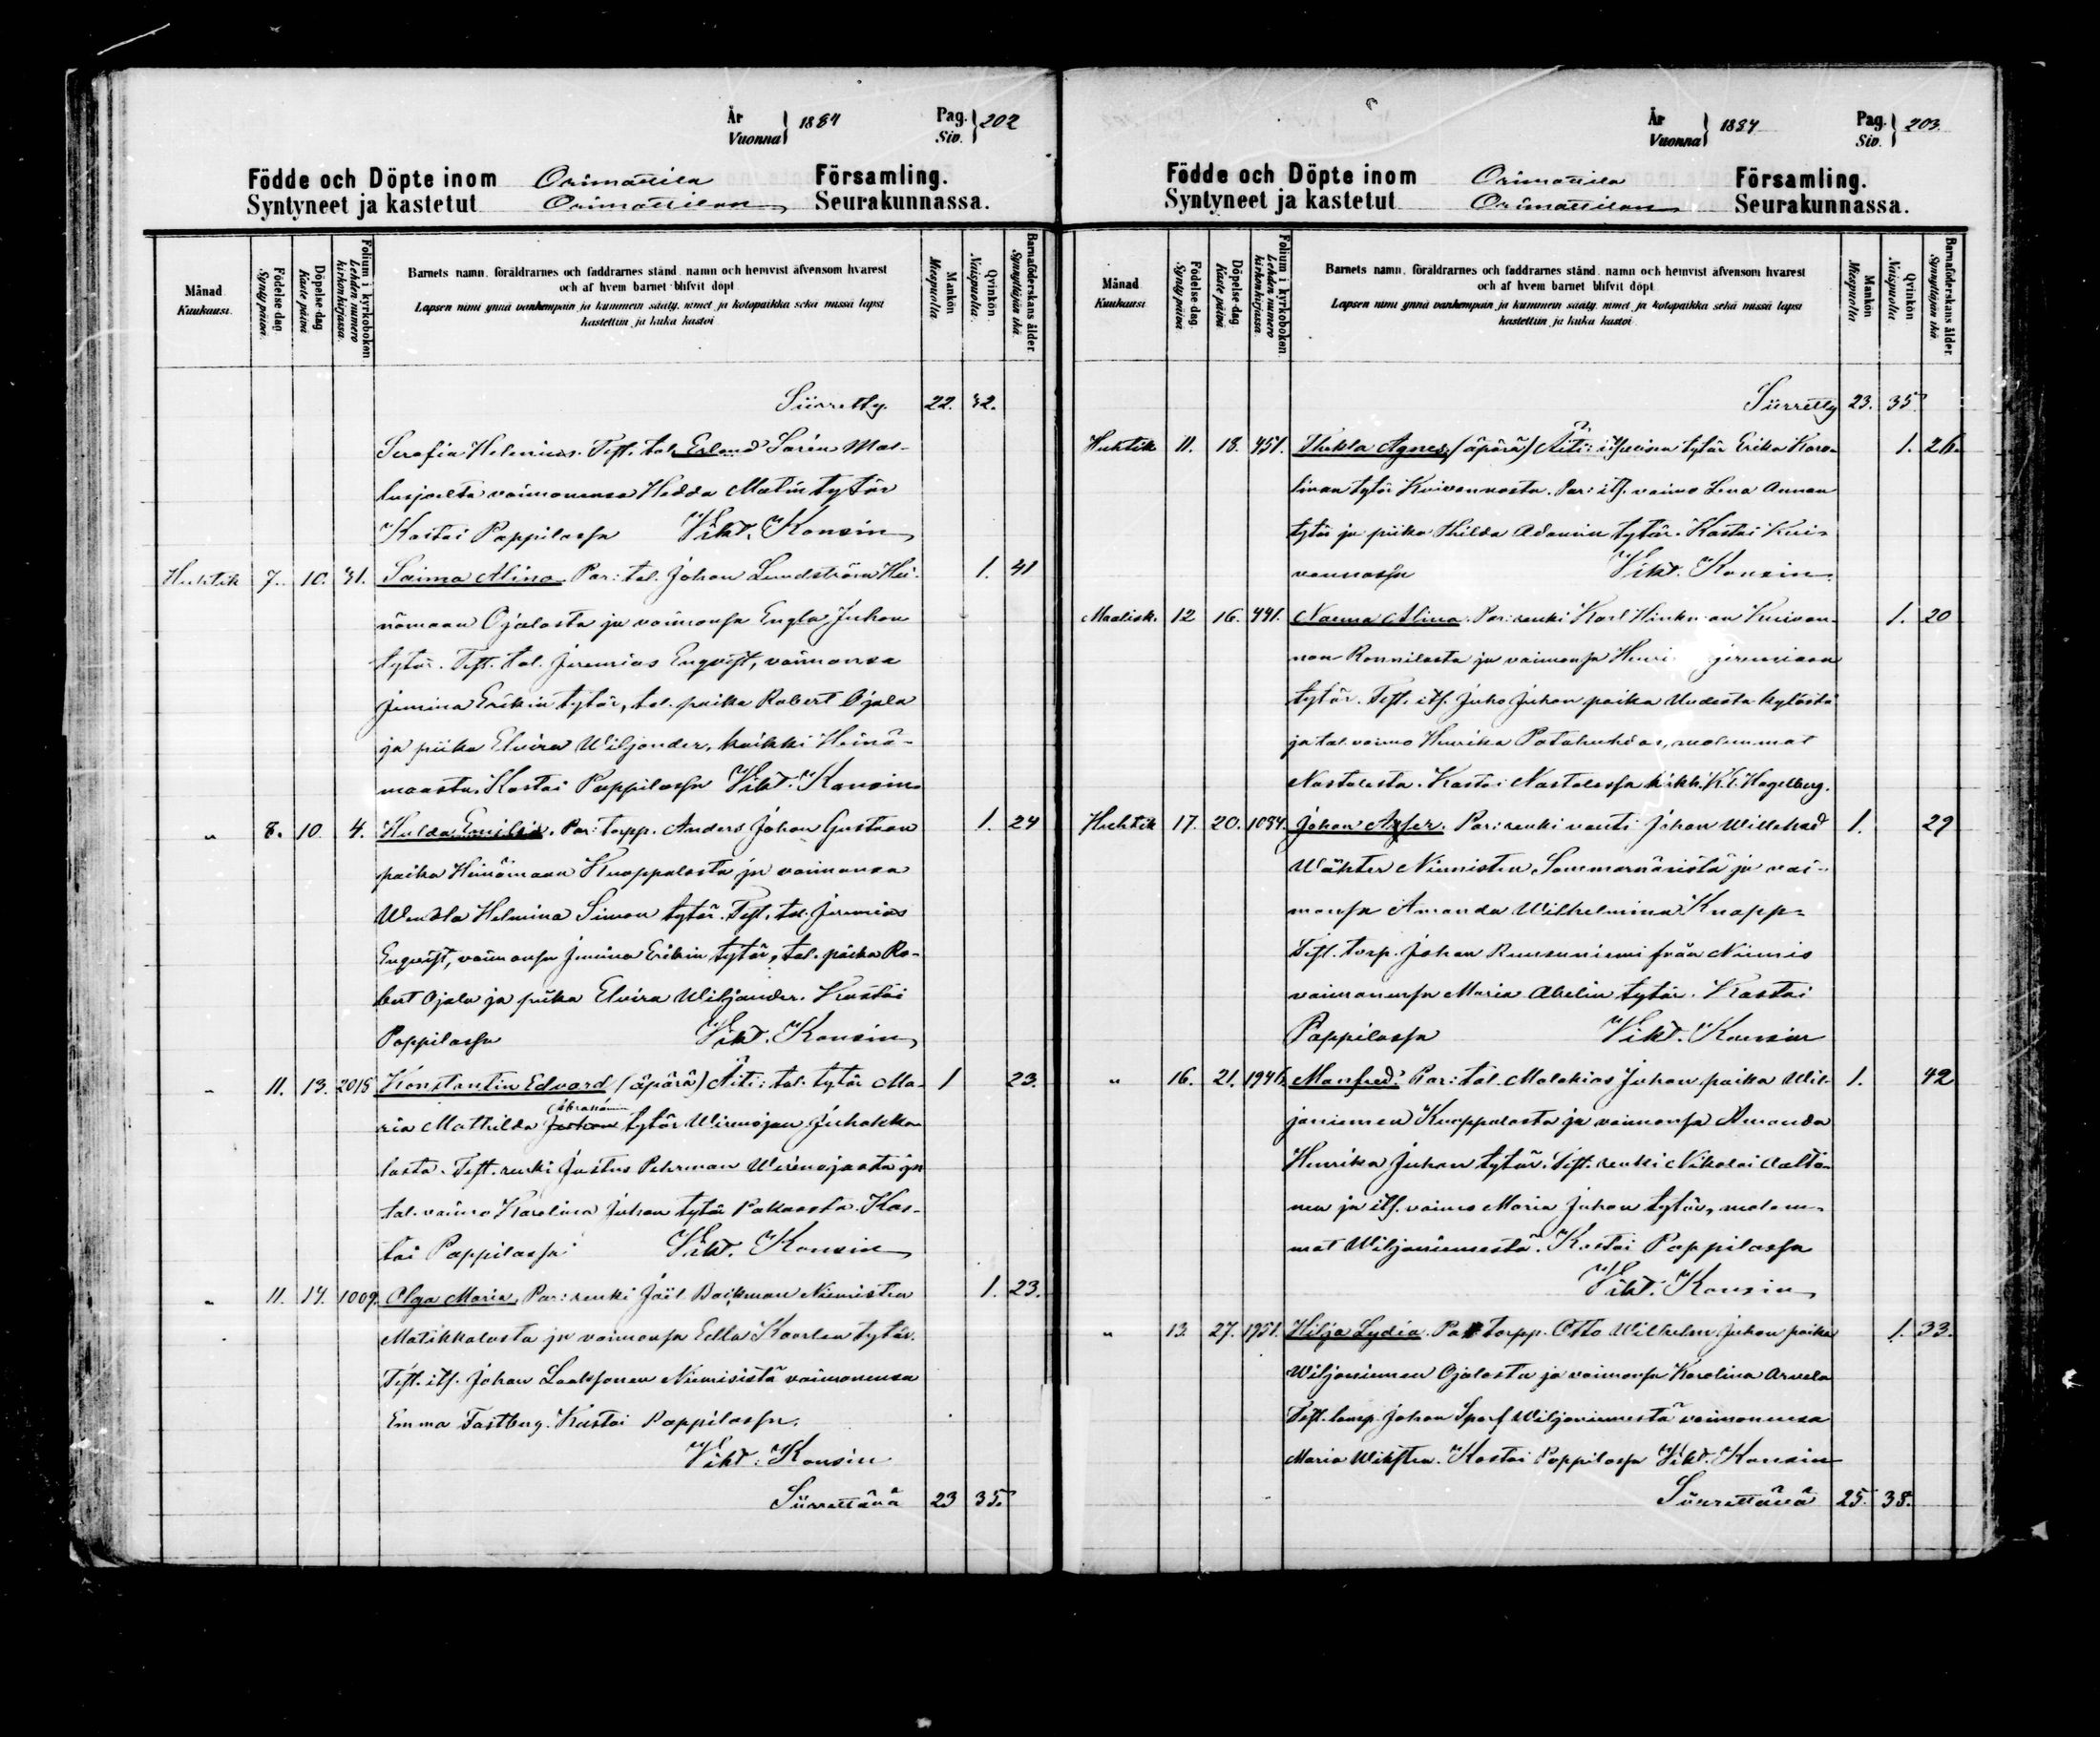 År
Vuonna } 1884
Pag.
Siv. } 202
Födde och Döpte inom Orimattila Församling.
Syntyneet ja kastetut Orimattilan Seurakunnassa.
Månad.
Kuukausi.
Födelse-dag.
Synty päivä.
Döpelse-dag
Kaste päivä
Folium i kyrkoboken
Lehden numero
kirkonkirjassa.
Barnets namn. föräldrarnes och faddrarnes stånd. namn och hemvist äfvensom hvarest
och af hvem barnet blifvit döpt.
Lapsen nimi ynnä vanhempain ja kummein sääty, nimet ja kotopaikka sekä missä lapsi
kastettiin ja kuka kastoi.
Mankön
Miespuolia
Qvinkön
Naispuolia.
Barnaföderskans ålder
Synnyttäjän ikä.
Siirretty. 22. 32.
Serafia Helenius. Test. tal. Erland Sarén Mal-
lusjoelta vaimonensa Hedda Matin tytär
Kastoi Pappilassa Vikt. Konsin
Huhtik 7. 10. 31. Saima Alina. Par: tal. Johan Lundström Hei- 1. 41
nämaan Ojalasta ja vaimonsa Engla Juhon
tytär. Test. tal. Jeremias Enqvist, vaimonsa
Jemina Erikin tytär, tal. poika Robert Ojala
ja piika Elvira Wiljander, kaikki Heinä-
maasta. Kastoi Pappilassa Vikt. Konsin
" 8. 10. 4. Hulda Emilia. Par: torpp. Anders Johan Gustaan 1. 24
poika Heinämaan Knappalasta ja vaimonsa
Wendla Helmina Simon tytär. Test. tal. Jeremias
Enqvist, vaimonsa Jemina Erikin tytär, tal. poika Ro-
bert Ojala ja piika Elvira Wiljander. Kastoi
Pappilassa Vikt. Konsin
" 11. 13. 2015 Konstantin Edvard (äpärä) Äiti: tal. tytär Ma- 1 23.
Abrahamin
ria Mathilda Juhon tytär Wirenojan Juhakka-
lasta. Test. renki Justus Pehrman Wirenojasta ja
tal. vaimo Karolina Juhon tytär Pakaasta. Kas-
toi Pappilassa Vikt. Konsin
" 11. 14. 1009. Olga Maria. Par: renki Joël Backman Niemisten 1. 23.
Matikkalasta ja vaimonsa Edla Kaarlen tytär.
Test. its. Johan Laakssonen Niemisistä vaimonensa
Emma Fastberg. Kastoi Pappilassa.
Vikt. Konsin
Siirrettävä 23 35.
År
Vuonna } 1884
Pag.
Siv. } 203.
Födde och Döpte inom Orimattila Församling.
Syntyneet ja kastetut Orimattilan Seurakunnassa.
Månad
Kuukausi
Födelse-dag.
Synty päivä.
Döpelse-dag
Kaste päivä
Folium i kyrkoboken
Lehden numero
kirkonkirjassa.
Barnets namn. föräldrarnes och faddrarnes stånd. namn och hemvist äfvensom hvarest
och af hvem barnet blifvit döpt.
Lapsen nimi ynnä vanhempain ja kummein sääty, nimet ja kotopaikka sekä missä lapsi
kastettiin ja kuka kastoi.
Mankön
Miespuolia
Qvinkön
Naispuolia
Barnaföderskans ålder
Synnyttäjän ikä.
Siirretty 23. 35
Huhtik 11. 18. 451. Thekla Agnes. (äpärä) Äiti: itsellisen tytär Erika Karo- 1. 26.
linan tytär Kuivannosta. Par: its. vaimo Lena Annan
tytär ja piika Hilda Adamin tytär. Kastoi Kui-
vannossa Vikt. Konsin
Maalisk. 12 16. 441. Naema Alina. Par: renki Karl Hinku an Kuivan- 1. 20
non Ronnilasta ja vaimonsa Henri Jeremiaan
tytär. Test. its. Juho Juhon poika Uudesta kylästä
ja tal. vaimo Henrika molemmat
Nastolasta. Kastoi Nastolassa kirkh. K. E. Hagelberg.
Huhtik 17. 20. 1084. Johan Axser. Par: renki vouti Johan Willehad 1. 29
Wäkter Niemisten Sommarnäsistä ja vai-
monsa Amanda Wilhelmina Knapp-
Test. torp. Johan Ruusuniemi från Niemis
vaimonensa Maria Abelin tytär. Kastoi
Pappilassa Vikt. Konsin
" 16. 21. 1946. Manfred. Par: tal. Malakias Juhon poika Wil- 1. 42
janiemen Knappalasta ja vaimonsa Amanda
Henrika Juhon tytär. Test. renki Nikolai Aalto-
nen ja its. vaimo Maria Juhon tytär, molem-
mat Wiljaniemestä. Kastoi Pappilassa
Vikt. Konsin
" 13. 27. 1951. Hilja Lydia. Par torpp. Otto Wilhelm Juhon poika 1. 33.
Wiljaniemen Ojalasta ja vaimonsa Karolina Arvela
Test. lamp. Johan Sparf Wiljaniemestä vaimonensa
Maria Wiksten. Kastoi Pappilassa Vikt. Konsin
Siirrettävä 25. 38.